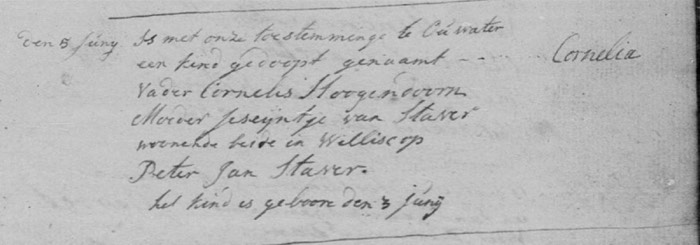 den 3 Juny Is met onze toestemminge te Oúwater
een kind gedoopt genaamt -- Cornelia
Vader Cornelis Hoogendoorn
Moeder Jeseijntje van Staver
woonende beide in Welliscop
Peter Jan Staver.
het kind is geboorn den 3 júnÿ